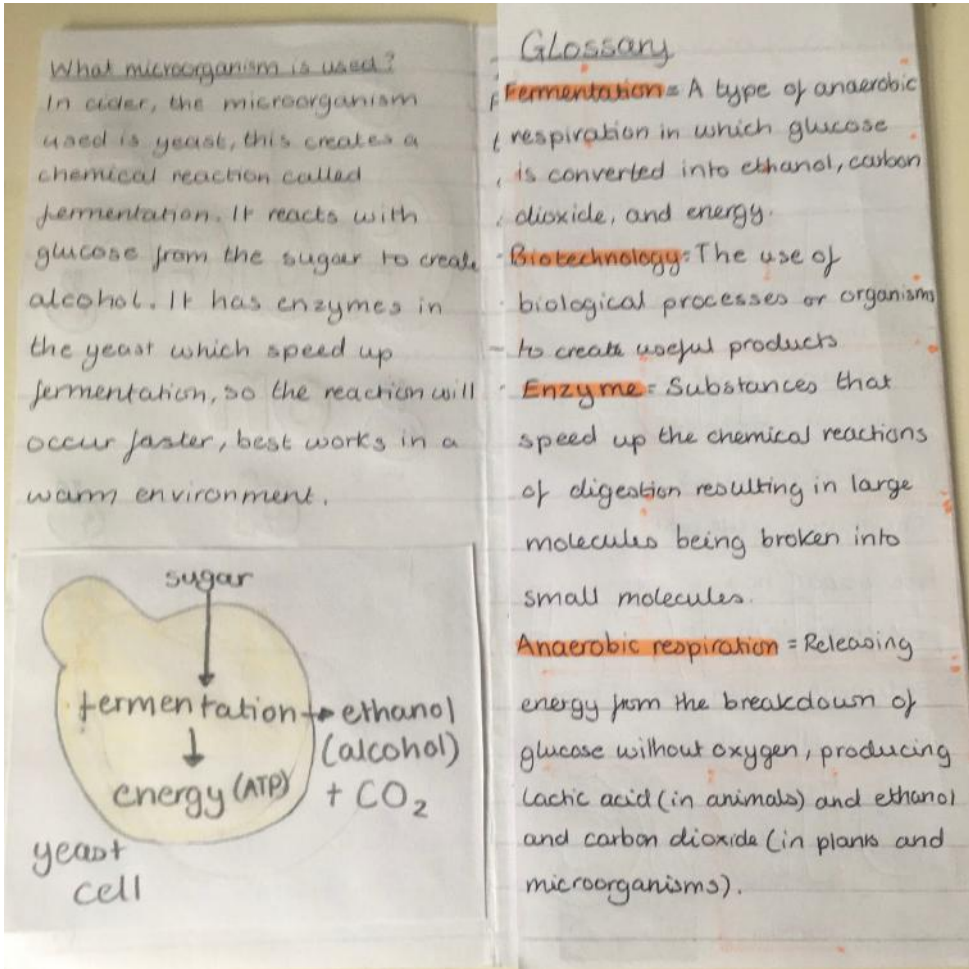 What microorganism is used?
In cider, the microorganism
used is yeast, this creates a
chemical reaction called
fermentation. It reacts with
glucose from the sugar to create
alcohol. It has enzymes in
the yeast which speed up
fermentation, so the reaction will
occur faster, best works in a
warm environment.
sugar
fermentation → ethanol
(alcohol)
energy (ATP) + CO2
yeast
cell
Glossary
Fermentation = A type of anaerobic
respiration in which glucose
is converted into ethanol, carbon
dioxide, and energy.
Biotechnology = The use of
biological processes or organisms
to create useful products
Enzyme = Substances that
speed up the chemical reactions
of digestion resulting in large
molecules being broken into
small molecules.
Anaerobic respiration = Releasing
energy from the breakdown of
glucose without oxygen, producing
Lactic acid (in animals) and ethanol
and carbon dioxide (in plants and
microorganisms).